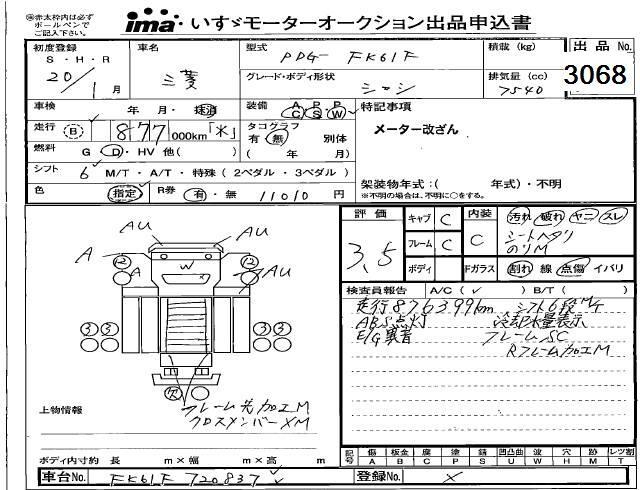 ※赤太枠内は必ず
ボールペンで
ご記入下さい。
ima いすゞモーターオークション出品申込書
初度登録 車名 型式 PDG- FK61F 積載 (kg) 出品 No.
S・H・R
20/1月 三菱 グレード・ボディ形状 シャシ 排気量 (cc) 7540 3068
車検 年 月・抹消 装備 A/C P/S P/W 特記事項
走行 B 877,000km「*」 タコグラフ 有 無 別体 メーター改ざん
燃料 G・D・HV 他( ) ( 年 月)
シフト 6 M/T・A/T・特殊(2ペダル・3ペダル) 架装物年式:( 年式)・不明
色 指定 R券 有・無 11010円 ※不明の場合は、不明に○をする。
評価 3.5 キャブ C 内装 C 汚れ 破れ ヤニ スレ
フレーム C シートヘタリ
のりM
ボディ Fガラス 割れ 線 点傷 イバリ
検査員報告 A/C( ✓ ) B/T( )
走行876399km シフト6段M/T
ABS点灯 冷却水量表示
E/G異音 フレームSC
RフレームカロエM
AU AU
A W AU
12
A AU
3 3 3 3
欠
上物情報
フレーム先加工M
クロスメンバーXM
ボディ内寸約 長 m×幅 m×高 m
記号 傷 A 板金 B 腐 C 塗 P 錆 S 凹凸曲 U 波 W 穴 H 跡 M レツ割 T
車台No. FK61F 720837 登録No. ×